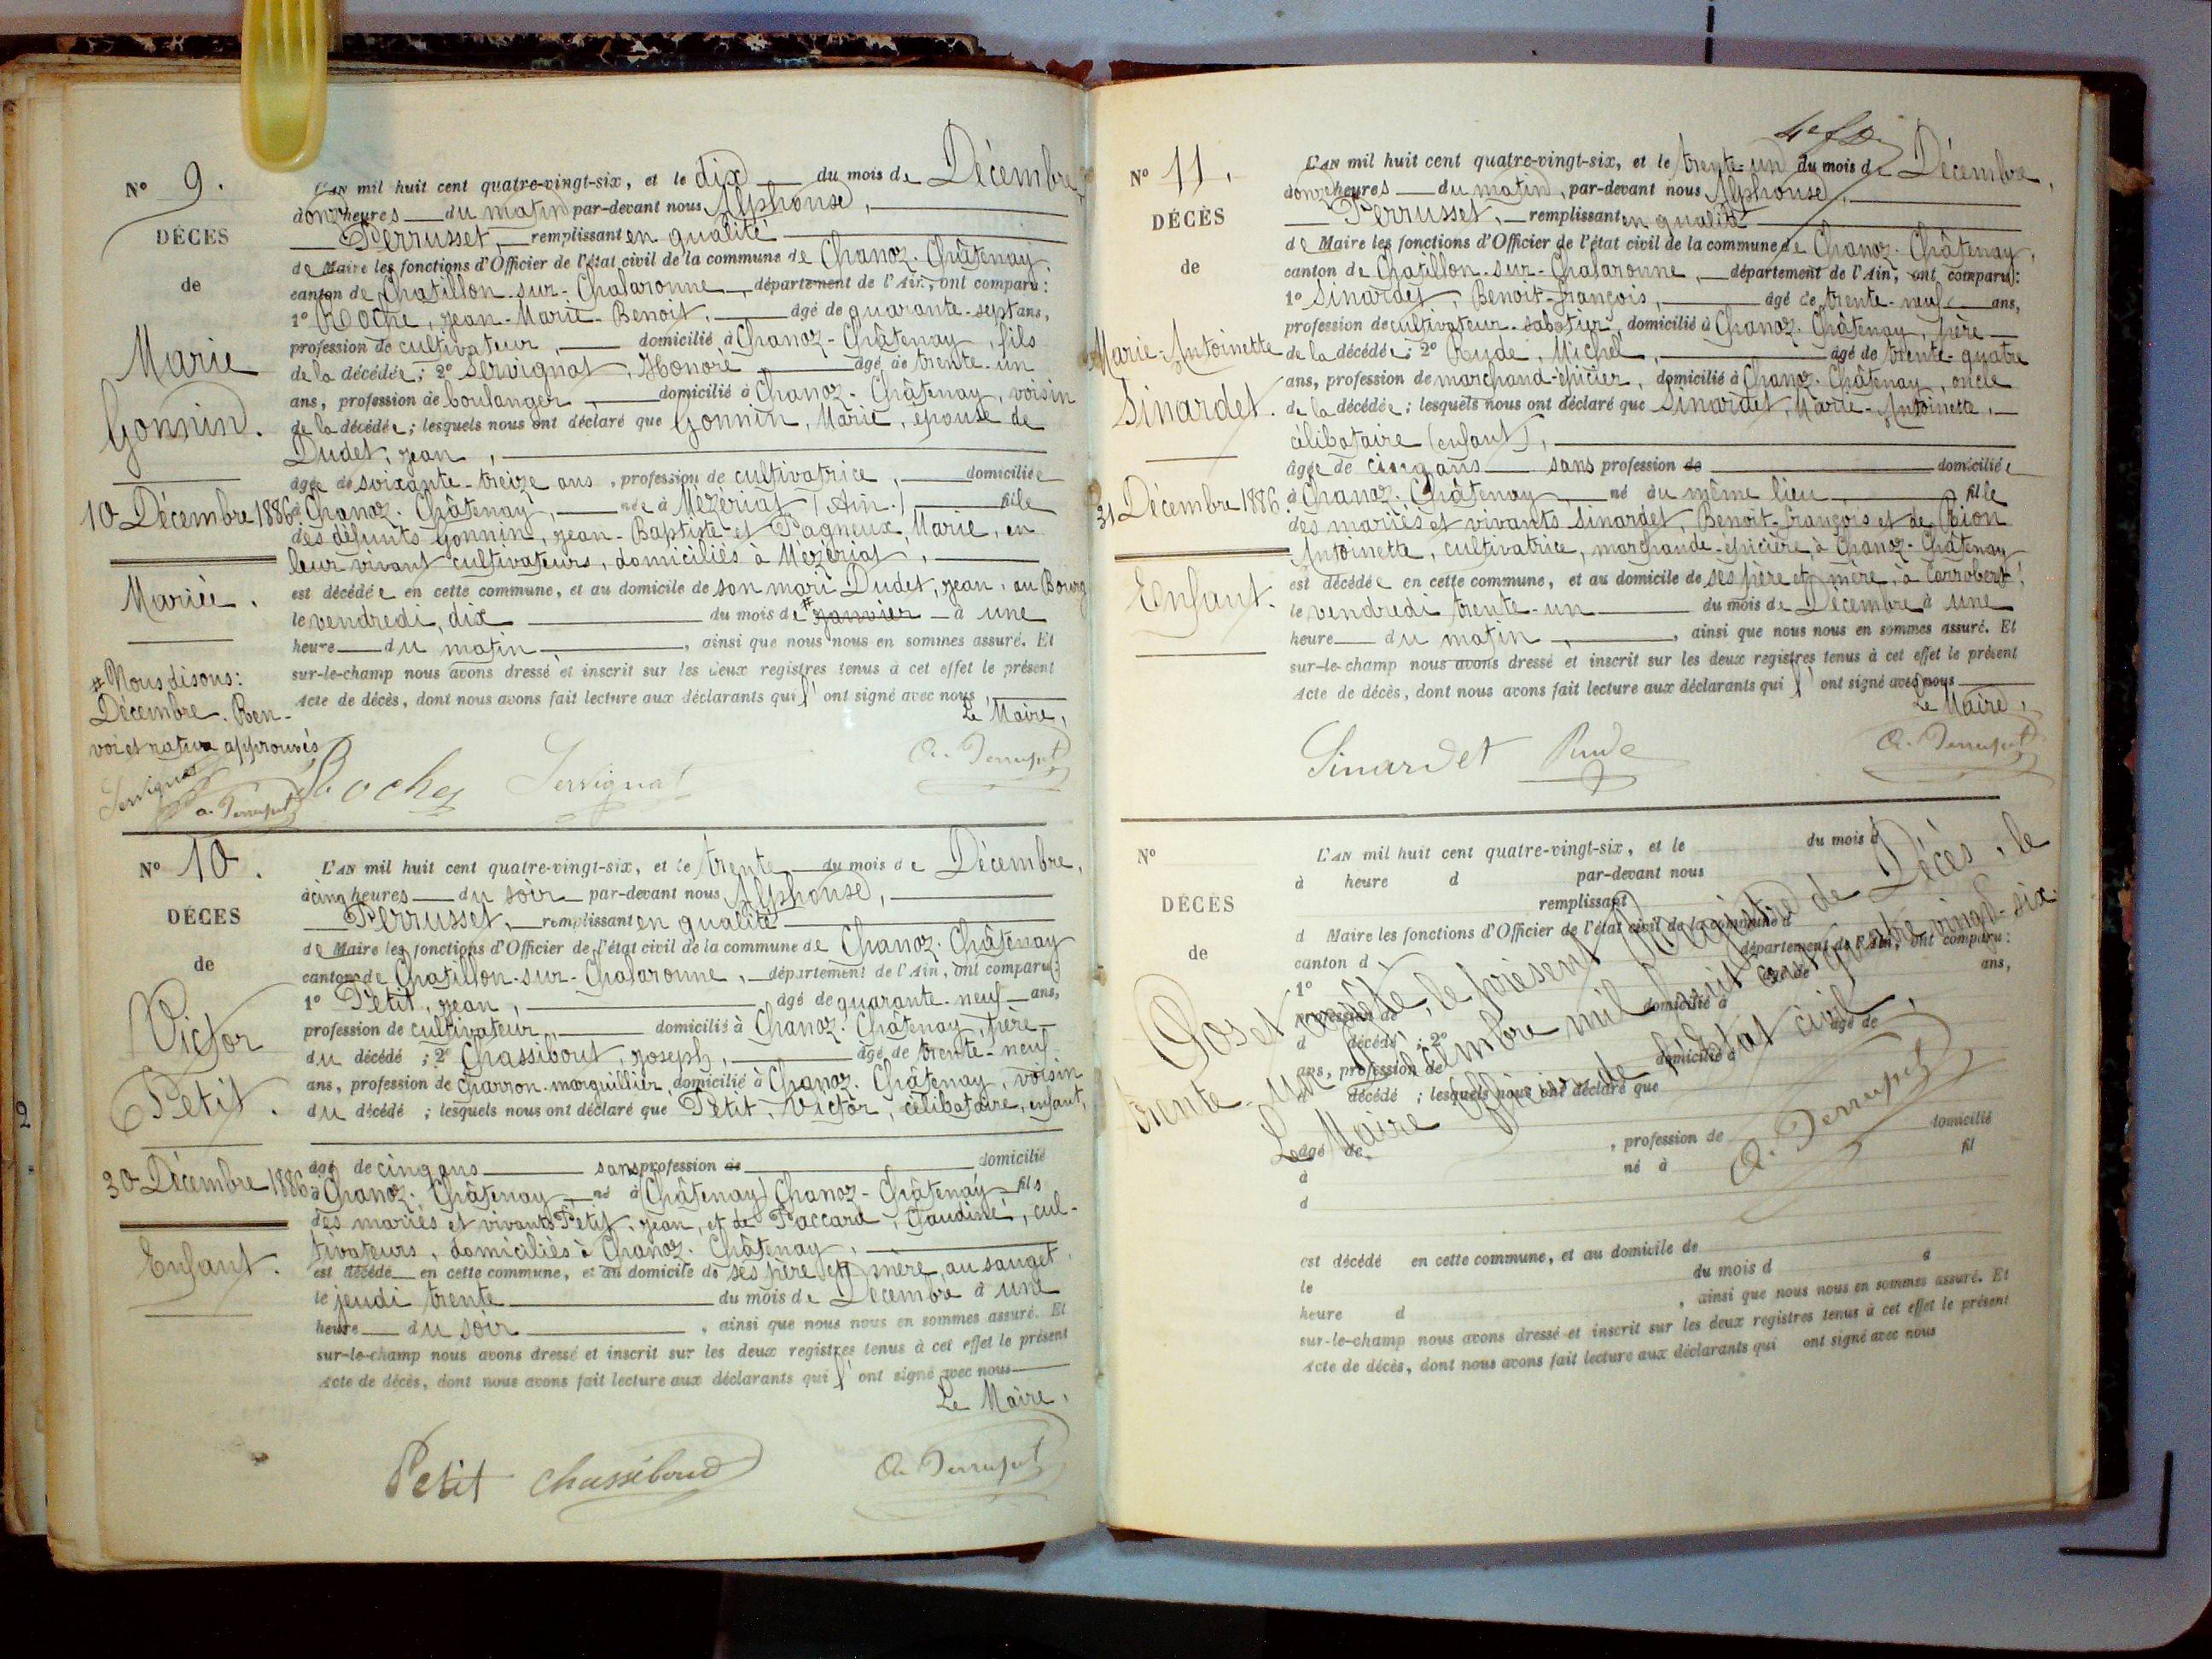 N° 9.
DÉCES
de
Marie
Gonnin.
10 Décembre 1886
Mariée.
# Nous disons:
Décembre. Ren-
voi et rature approuvés
Servignat
a. Perrusset
L'AN mil huit cent quatre-vingt-six, et le dix du mois de Décembre,
à onze heures du matin par-devant nous Alphonse,
Perrusset, remplissant en qualité
de Maire les fonctions d'Officier de l'état civil de la commune de Chanoz-Châtenay,
canton de Chatillon-sur-Chalaronne, département de l'Ain, ont comparu:
1° Roche, Jean-Marie-Benoit, âgé de quarante-sept ans,
profession de cultivateur, domicilié à Chanoz-Châtenay, fils
de la décédée; 2° Servignat, Honoré, âgé de trente-un
ans, profession de boulanger, domicilié à Chanoz-Châtenay, voisin
de la décédée; lesquels nous ont déclaré que Gonnin, Marie, épouse de
Dudet, Jean,
âgée de soixante-treize ans, profession de cultivatrice, domiciliée
à Chanoz-Châtenay, née à Mézériat (Ain.) fille
des défunts Gonnin, Jean-Baptiste et Pagneux, Marie, en
leur vivant cultivateurs, domiciliés à Mézériat,
est décédée en cette commune, et au domicile de son mari Dudet, Jean, au Bourg
le vendredi, dix du mois de # janvier à une
heure du matin, ainsi que nous nous en sommes assuré. Et
sur-le-champ nous avons dressé et inscrit sur les deux registres tenus à cet effet le présent
Acte de décès, dont nous avons fait lecture aux déclarants qui l'ont signé avec nous,
Le Maire,
Roche Servignat a. Perrusset
N° 10.
DÉCES
de
Victor
Petit.
30 Décembre 1886
Enfant.
L'AN mil huit cent quatre-vingt-six, et le trente du mois de Décembre,
à cinq heures du soir par-devant nous Alphonse,
Perrusset, remplissant en qualité
de Maire les fonctions d'Officier de l'état civil de la commune de Chanoz-Châtenay
canton de Chatillon-sur-Chalaronne, département de l'Ain, ont comparu:
1° Petit, Jean, âgé de quarante-neuf ans,
profession de cultivateur, domicilié à Chanoz-Châtenay, père
du décédé; 2° Chassibout, Joseph, âgé de trente-neuf
ans, profession de charron-marguillier, domicilié à Chanoz-Châtenay, voisin
du décédé; lesquels nous ont déclaré que Petit, Victor, célibataire, enfant,
âgé de cinq ans sans profession de domicilié
à Chanoz-Châtenay, né à (Châtenay) Chanoz-Châtenay fils
des mariés et vivants Petit, Jean, et de Paccard, Claudine, cul-
tivateurs, domiciliés à Chanoz-Châtenay,
est décédé en cette commune, et au domicile de ses père et mère, au sauget,
le jeudi trente du mois de Décembre à une
heure du soir, ainsi que nous nous en sommes assuré. Et
sur-le-champ nous avons dressé et inscrit sur les deux registres tenus à cet effet le présent
Acte de décès, dont nous avons fait lecture aux déclarants qui l'ont signé avec nous
Le Maire,
Petit Chassiboud a. Perrusset
N° 11.
DÉCÈS
de
Marie-Antoinette
Sinardet.
31 Décembre 1886.
Enfant.
L'AN mil huit cent quatre-vingt-six, et le trente-un du mois de Décembre,
à onze heures du matin, par-devant nous Alphonse,
Perrusset, remplissant en qualité
de Maire les fonctions d'Officier de l'état civil de la commune de Chanoz-Châtenay,
canton de Chatillon-sur-Chalaronne, département de l'Ain, ont comparu:
1° Sinardet, Benoit-François, âgé de trente-neuf ans,
profession de cultivateur-sabotier, domicilié à Chanoz-Châtenay, père
de la décédée; 2° Rude, Michel, âgé de trente-quatre
ans, profession de marchand-épicier, domicilié à Chanoz-Châtenay, oncle
de la décédée; lesquels nous ont déclaré que Sinardet, Marie-Antoinette,
célibataire (enfant),
âgée de cinq ans sans profession de domiciliée
à Chanoz-Châtenay, né au même lieu fille
des mariés et vivants Sinardet, Benoit-François et de Rion
Antoinette, cultivatrice, marchande-épicière à Chanoz-Châtenay
est décédée en cette commune, et au domicile de ses père et mère, à Carrobert,
le vendredi trente-un du mois de Décembre à une
heure du matin, ainsi que nous nous en sommes assuré. Et
sur-le-champ nous avons dressé et inscrit sur les deux registres tenus à cet effet le présent
Acte de décès, dont nous avons fait lecture aux déclarants qui l'ont signé avec nous
Le Maire,
Sinardet Rude a. Perrusset
N°
DÉCÈS
de
L'AN mil huit cent quatre-vingt-six, et le du mois d
à heure d par-devant nous
remplissant
d Maire les fonctions d'Officier de l'état civil de la commune d
canton d département de l'Ain, ont comparu:
1° âgé de ans,
profession de domicilié à
d décédé; 2° âgé de
ans, profession de domicilié à
d décédé; lesquels nous ont déclaré que
âgé de, profession de domicilié
à né à fil
d
est décédé en cette commune, et au domicile de
le du mois d à
heure d, ainsi que nous nous en sommes assuré. Et
sur-le-champ nous avons dressé et inscrit sur les deux registres tenus à cet effet le présent
Acte de décès, dont nous avons fait lecture aux déclarants qui ont signé avec nous
Clos et arrêté, le présent Registre de Décès, le
trente-un Décembre mil huit cent quatre-vingt-six.
Le Maire Officier de l'état civil,
a. Perrusset
2